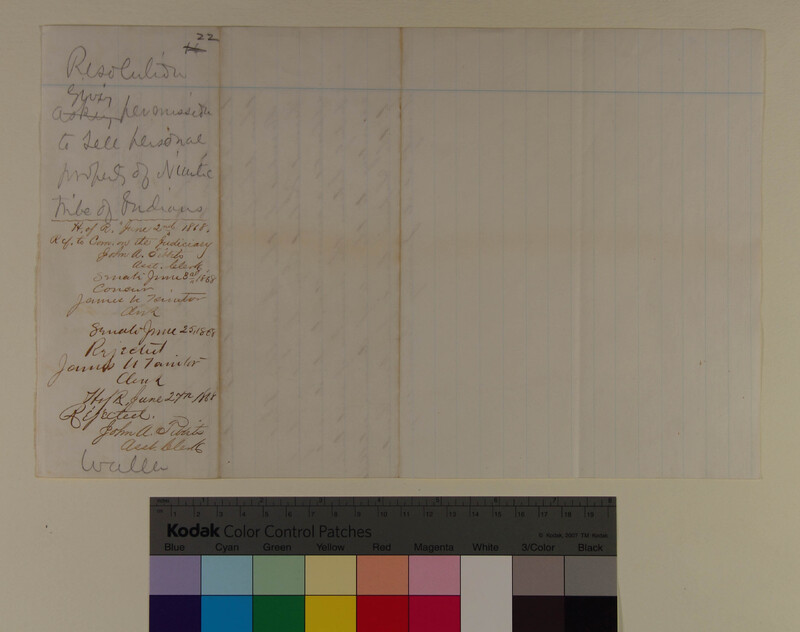 22
Resolution
giving
asking permission
to sell personal
property of Niantic
tribe of Indians
H. of R. June 2nd 1868.
Ref. to Com. on the Judiciary
John A. Tibbits
Asst. Clerk
Senate June 3d 1868
Concur
James U Taintor
Clerk
Senate June 25, 1868
Rejected
James U Taintor
Clerk
H of R June 27th 1868
Rejected.
John A. Tibbits
Asst. Clerk
Waller
Kodak Color Control Patches
© Kodak, 2007 TM: Kodak
Blue Cyan Green Yellow Red Magenta White 3/Color Black